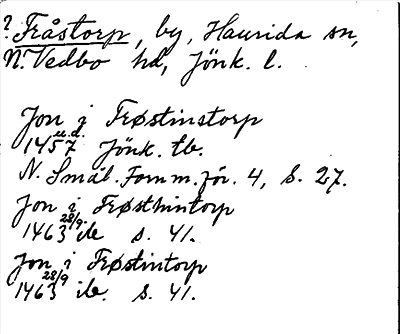 ? Fråstorp, by, Haurida sn,
N. Vedbo hd, Jönk. l.
Jon i Frøstinstorp
1457 u.d. Jönk. tb.
N. Smål. Fornm.för. 4, S. 27.
Jon i Frøsthintorp
1463 28/9 ib. s. 41.
Jon i Frøstintorp
1463 28/9 ib. s. 41.